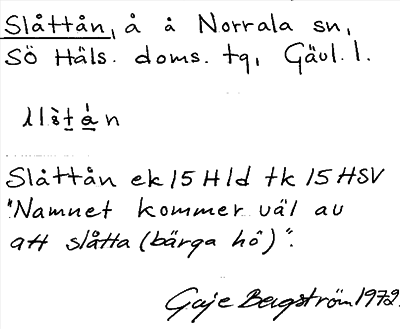 Slåttån, å å Norrala sn,
Sö Häls. doms. tg, Gävl. l.
Slåttån ek 15 Hld tk 15 HSV
"Namnet kommer väl av
att slåtta (bärga hö)".
Gaje Bergström 1972.